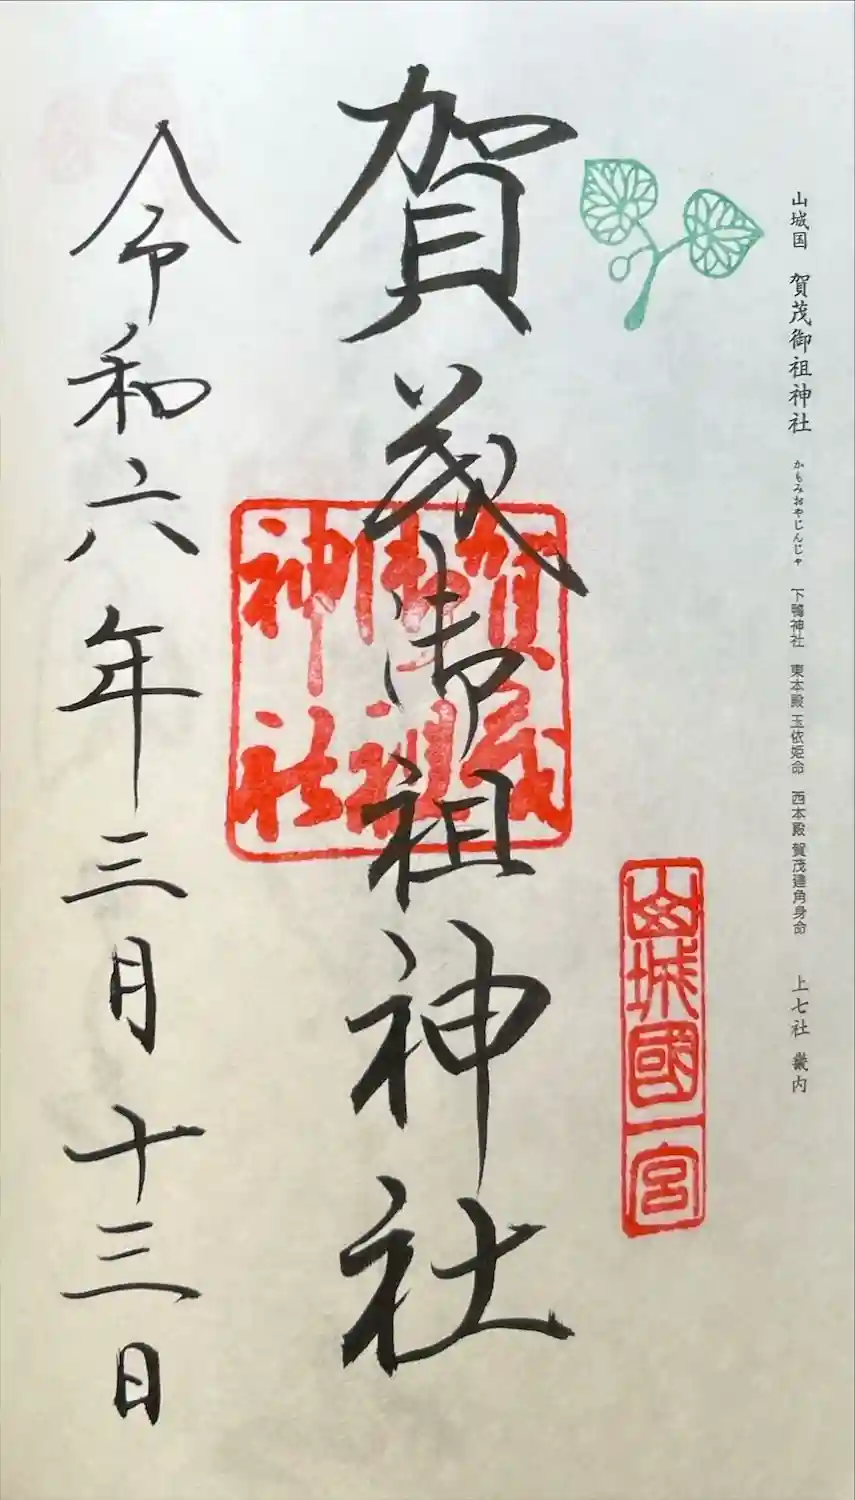 山城国 賀茂御祖神社 かもみおやじんじゃ 下鴨神社 東本殿 玉依姫命 西本殿 賀茂建角身命 上七社 畿内
山城國一宮
賀茂御祖神社
賀茂御祖神社
令和六年三月十三日